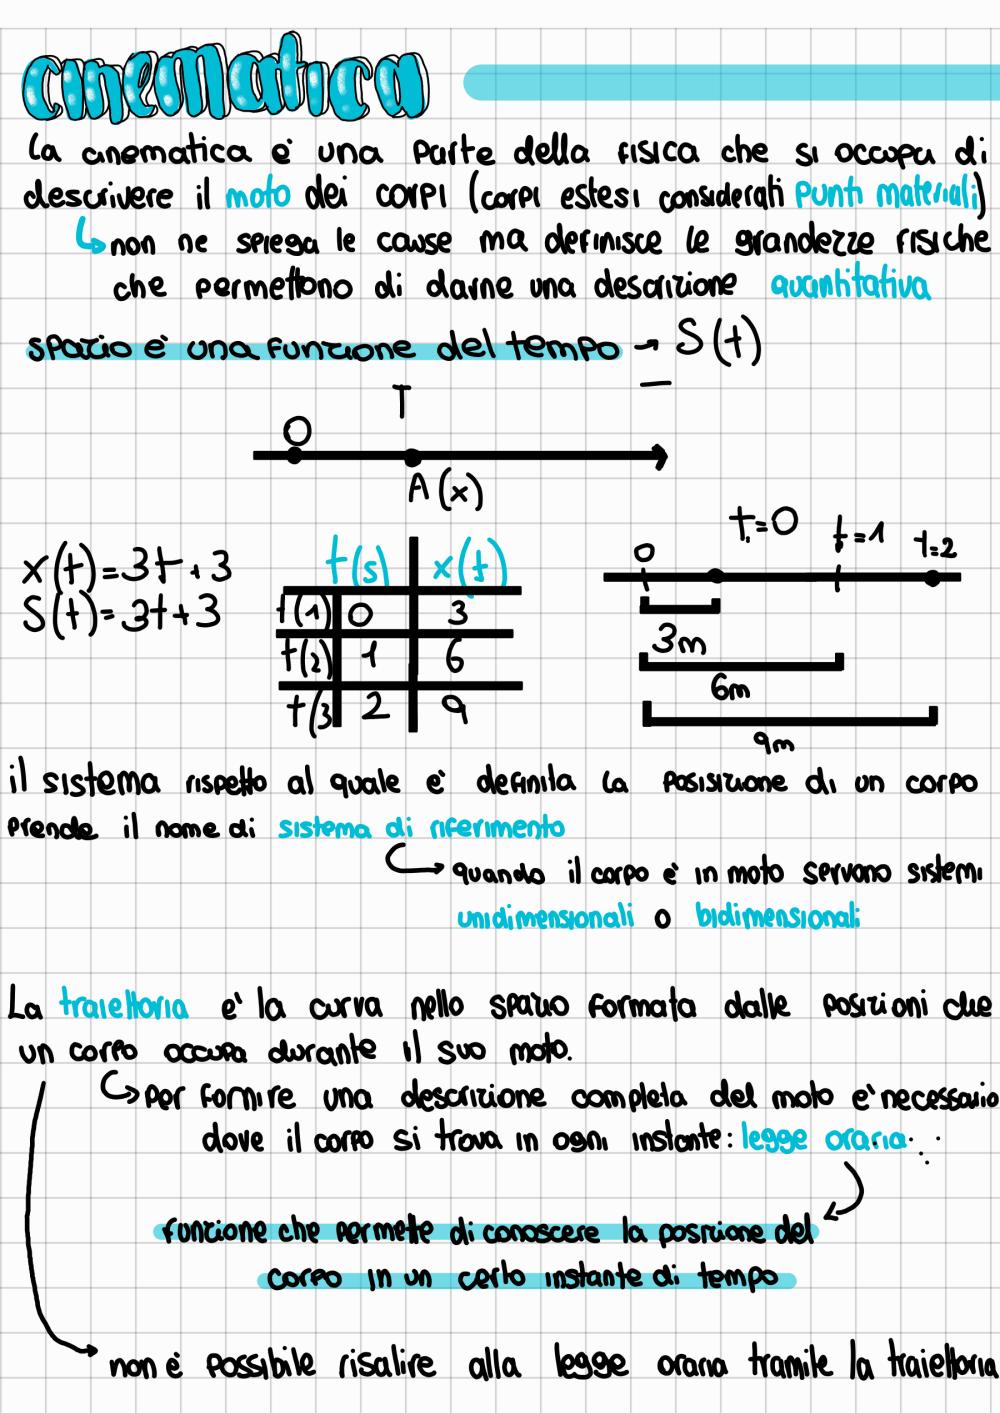 cinematica
la cinematica è una parte della fisica che si occupa di
descrivere il moto dei corpi (corpi estesi considerati punti materiali)
non ne spiega le cause ma definisce le grandezze fisiche
che permettono di darne una descrizione quantitativa
spazio è una funzione del tempo → S(t)
T
O
A(x)
x(t)=3t+3
S(t)=3t+3
t(s) x(t)
t(1) 0 3
t(2) 1 6
t(3 2 9
t=0 t=1 t=2
0
3m
6m
9m
il sistema rispetto al quale è definita la posisizione di un corpo
prende il nome di sistema di riferimento
quando il corpo è in moto servono sistemi
unidimensionali o bidimensionali
La traiettoria è la curva nello spazio formata dalle posizioni che
un corpo occupa durante il suo moto.
per fornire una descrizione completa del moto è necessario
dove il corpo si trova in ogni instante: legge oraria
funzione che permette di conoscere la posizione del
corpo in un certo instante di tempo
non è possibile risalire alla legge oraria tramite la traiettoria